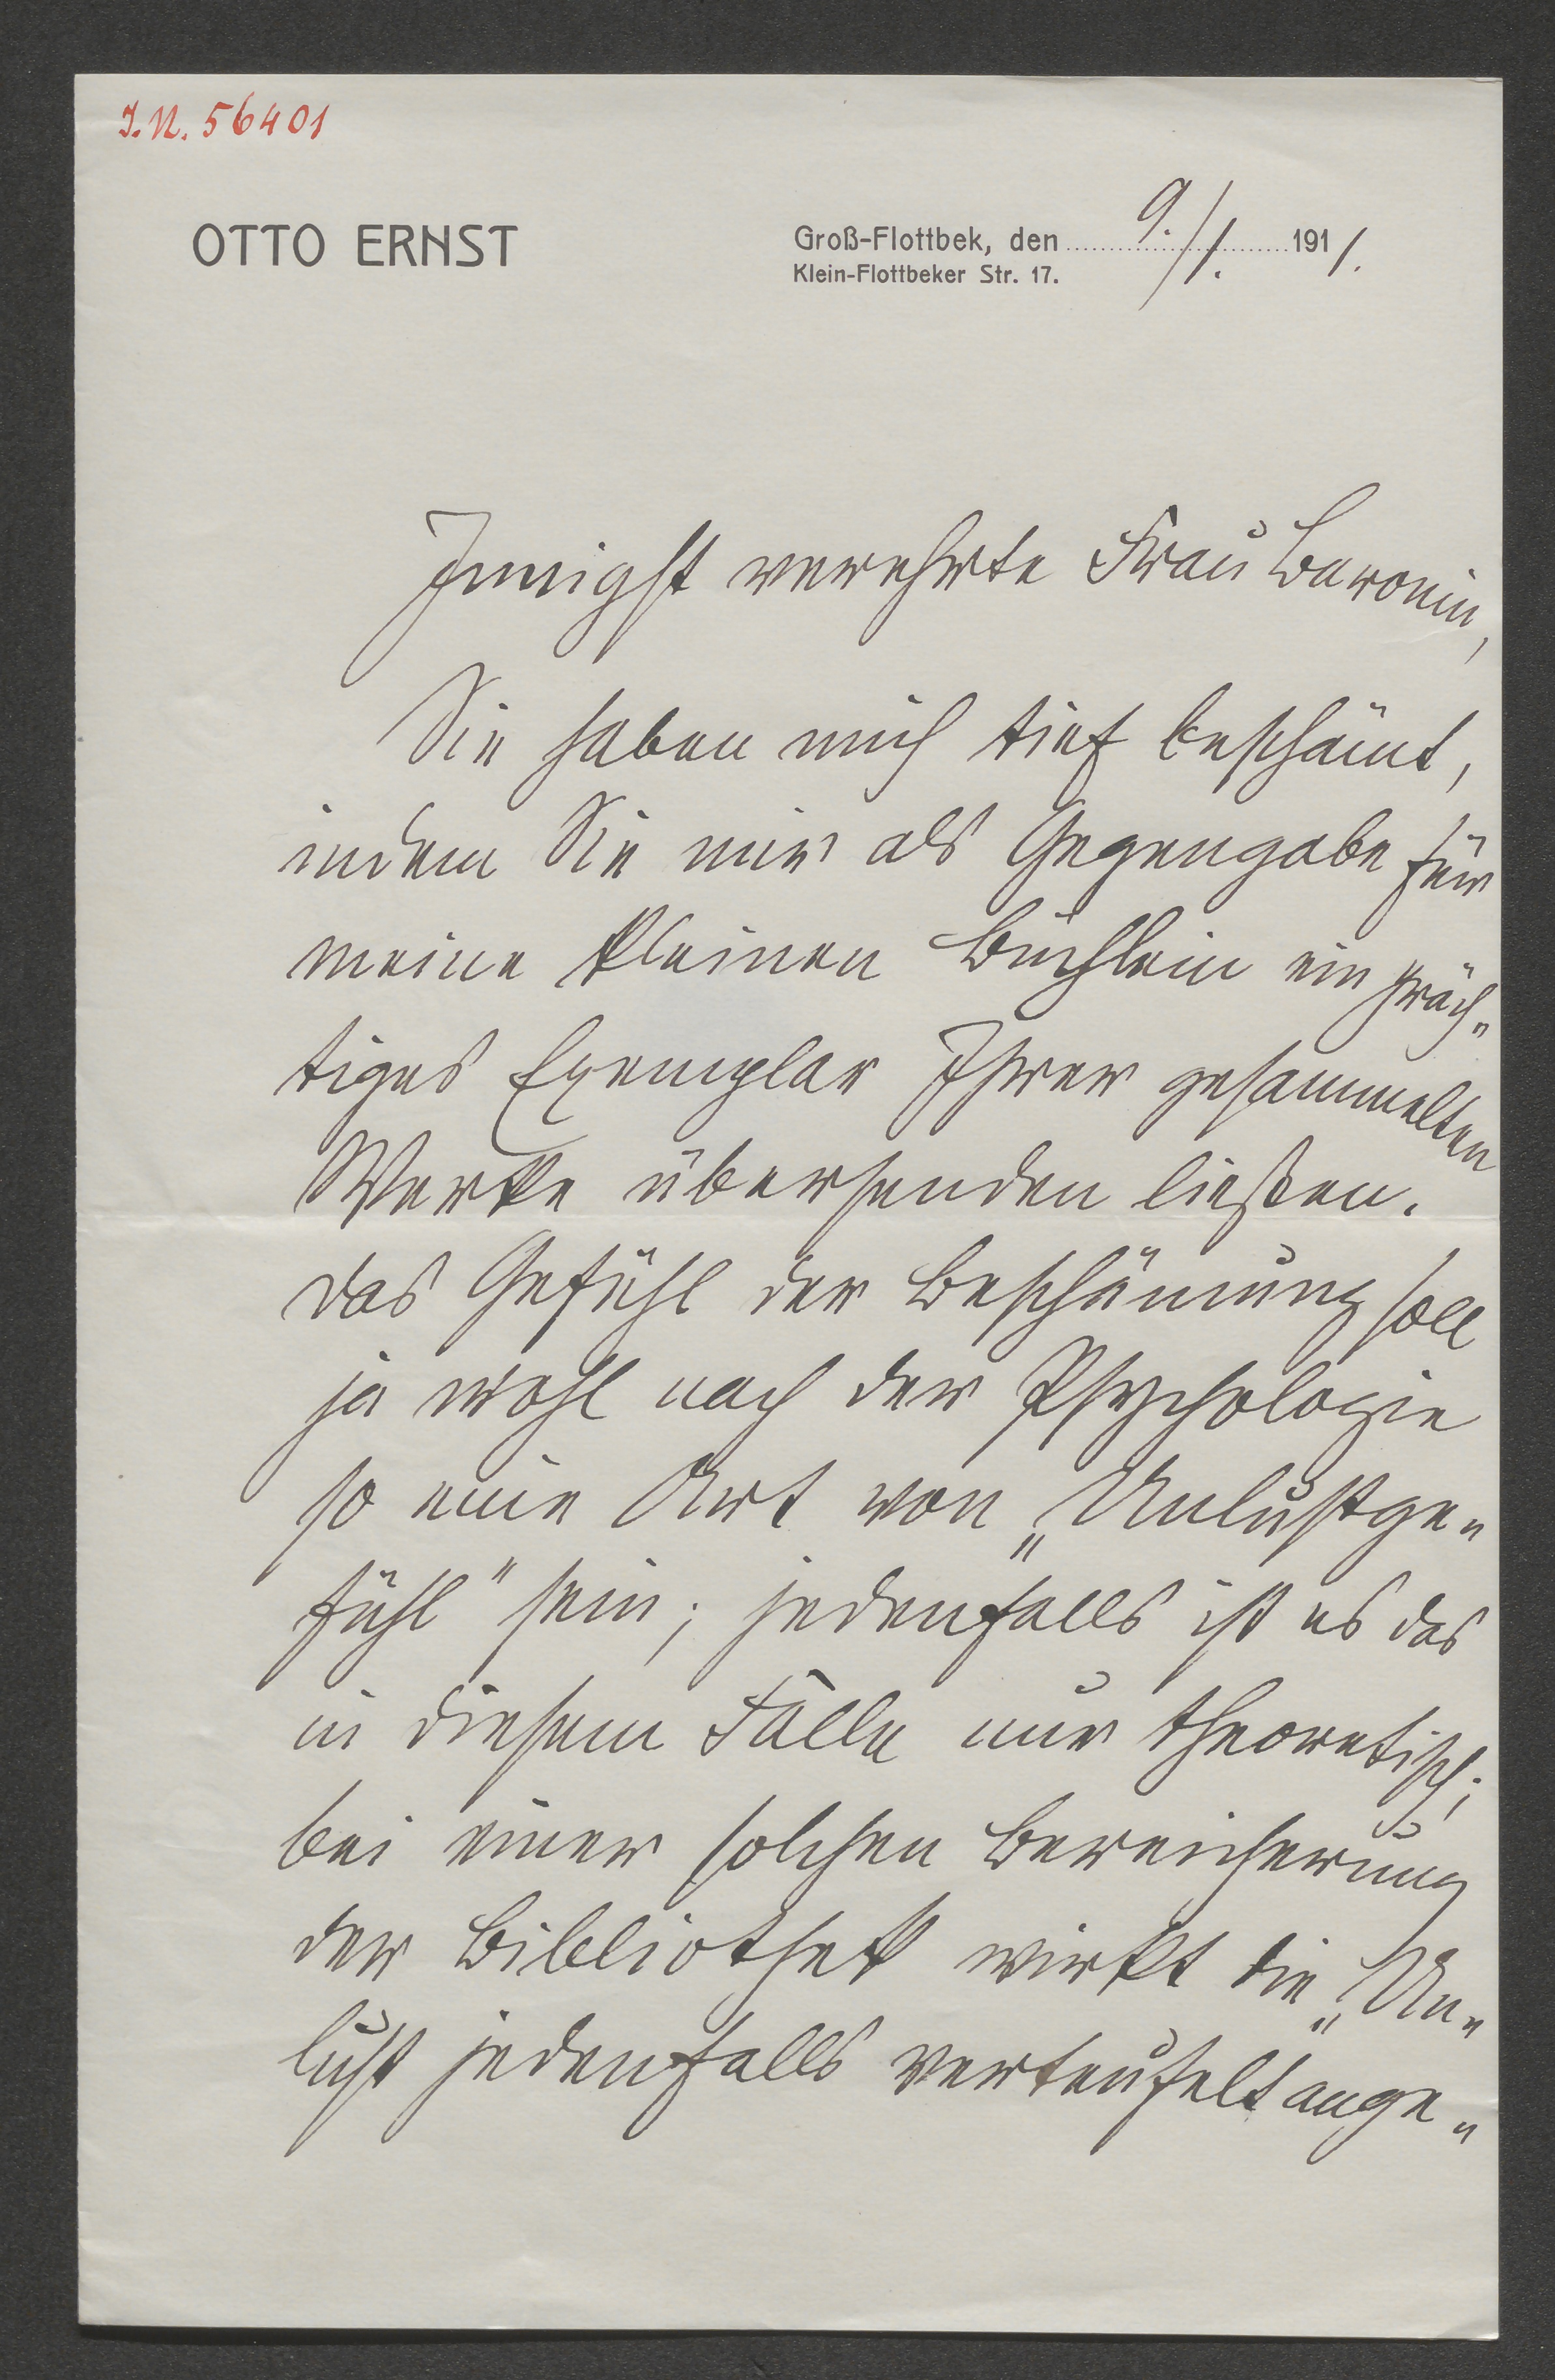 I.N. 56401
OTTO ERNST
Groß-Flottbek, den 9./1. 1911.
Klein-Flottbeker Str. 17.
Innigst verehrte Frau Baronin,
Sie haben mich tief beschämt,
indem Sie mir als Gegengabe für
meine kleinen Büchlein ein präch„
tiges Exemplar Ihrer gesammelten
Werke übersenden ließen.
Das Gefühl der Beschämung soll
ja wohl nach der Psychologie
so eine Art von „Unlustge„
fühl" sein; jedenfalls ist es das
in diesem Falle nur theoretisch;
bei einer solchen Bereicherung
der Bibliothek wirkt die „Un„
lust jedenfalls verteufelt ange„